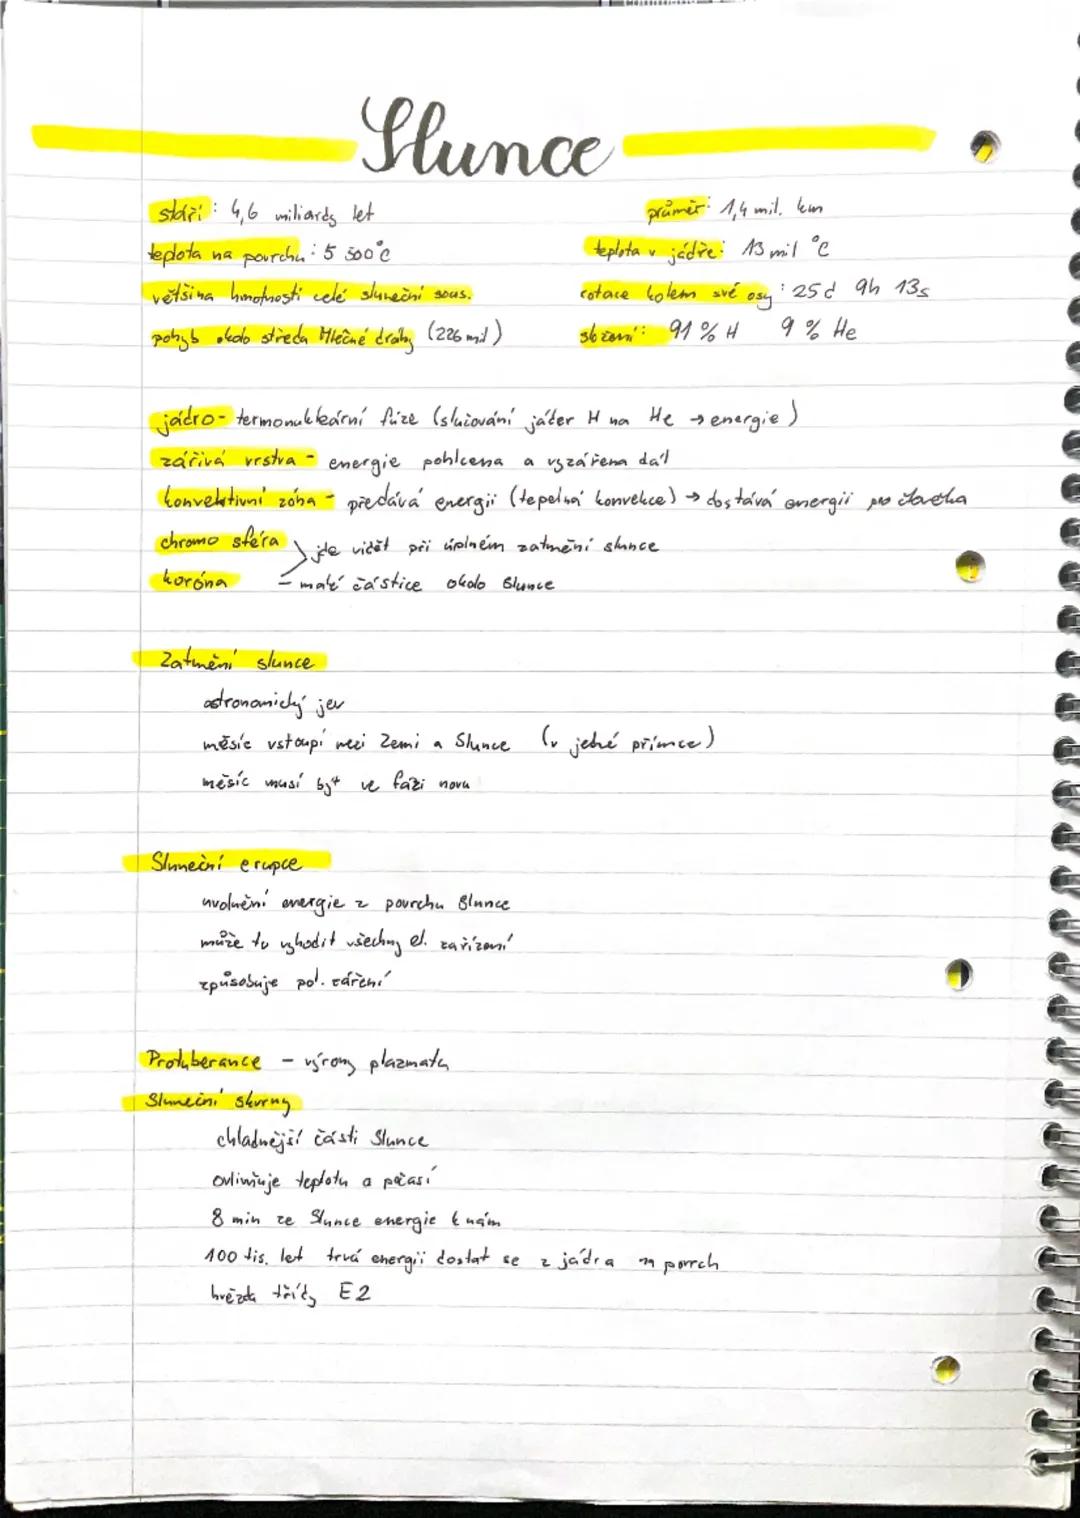 Slunce
stáří: 4,6 miliardy let
průměr: 1,4 mil. km
teplota na povrchu: 5 500°C
teplota v jádře: 13 mil °C
většina hmotnosti celé sluneční sous.
rotace kolem své osy: 25d 9h 13s
pohyb okolo středa Mléčné dráhy (226 mil)
složení: 91 % H 9 % He
jádro - termonukleární fúze (slučování jáder H na He → energie)
zářivá vrstva - energie pohlcena a vyzářena dál
konvektivní zóna - předává energii (tepelná konvekce) → dostává energii po
chromosféra
jde vidět při úplném zatmění slunce
koróna - malé částice okolo Slunce
Zatmění slunce
astronomický jev
měsíc vstoupí mezi Zemi a Slunce (v jedné přímce)
měsíc musí být ve fázi novu
Sluneční erupce
uvolnění energie z povrchu Slunce
může to vyhodit všechny el. zařízení
způsobuje pol. záření
Protuberance - výrony plazmatu
Sluneční skvrny
chladnější části Slunce
ovlivňuje teplotu a počasí
8 min ze Slunce energie k nám
100 tis. let trvá energii dostat se z jádra na povrch
hvězda třídy E2